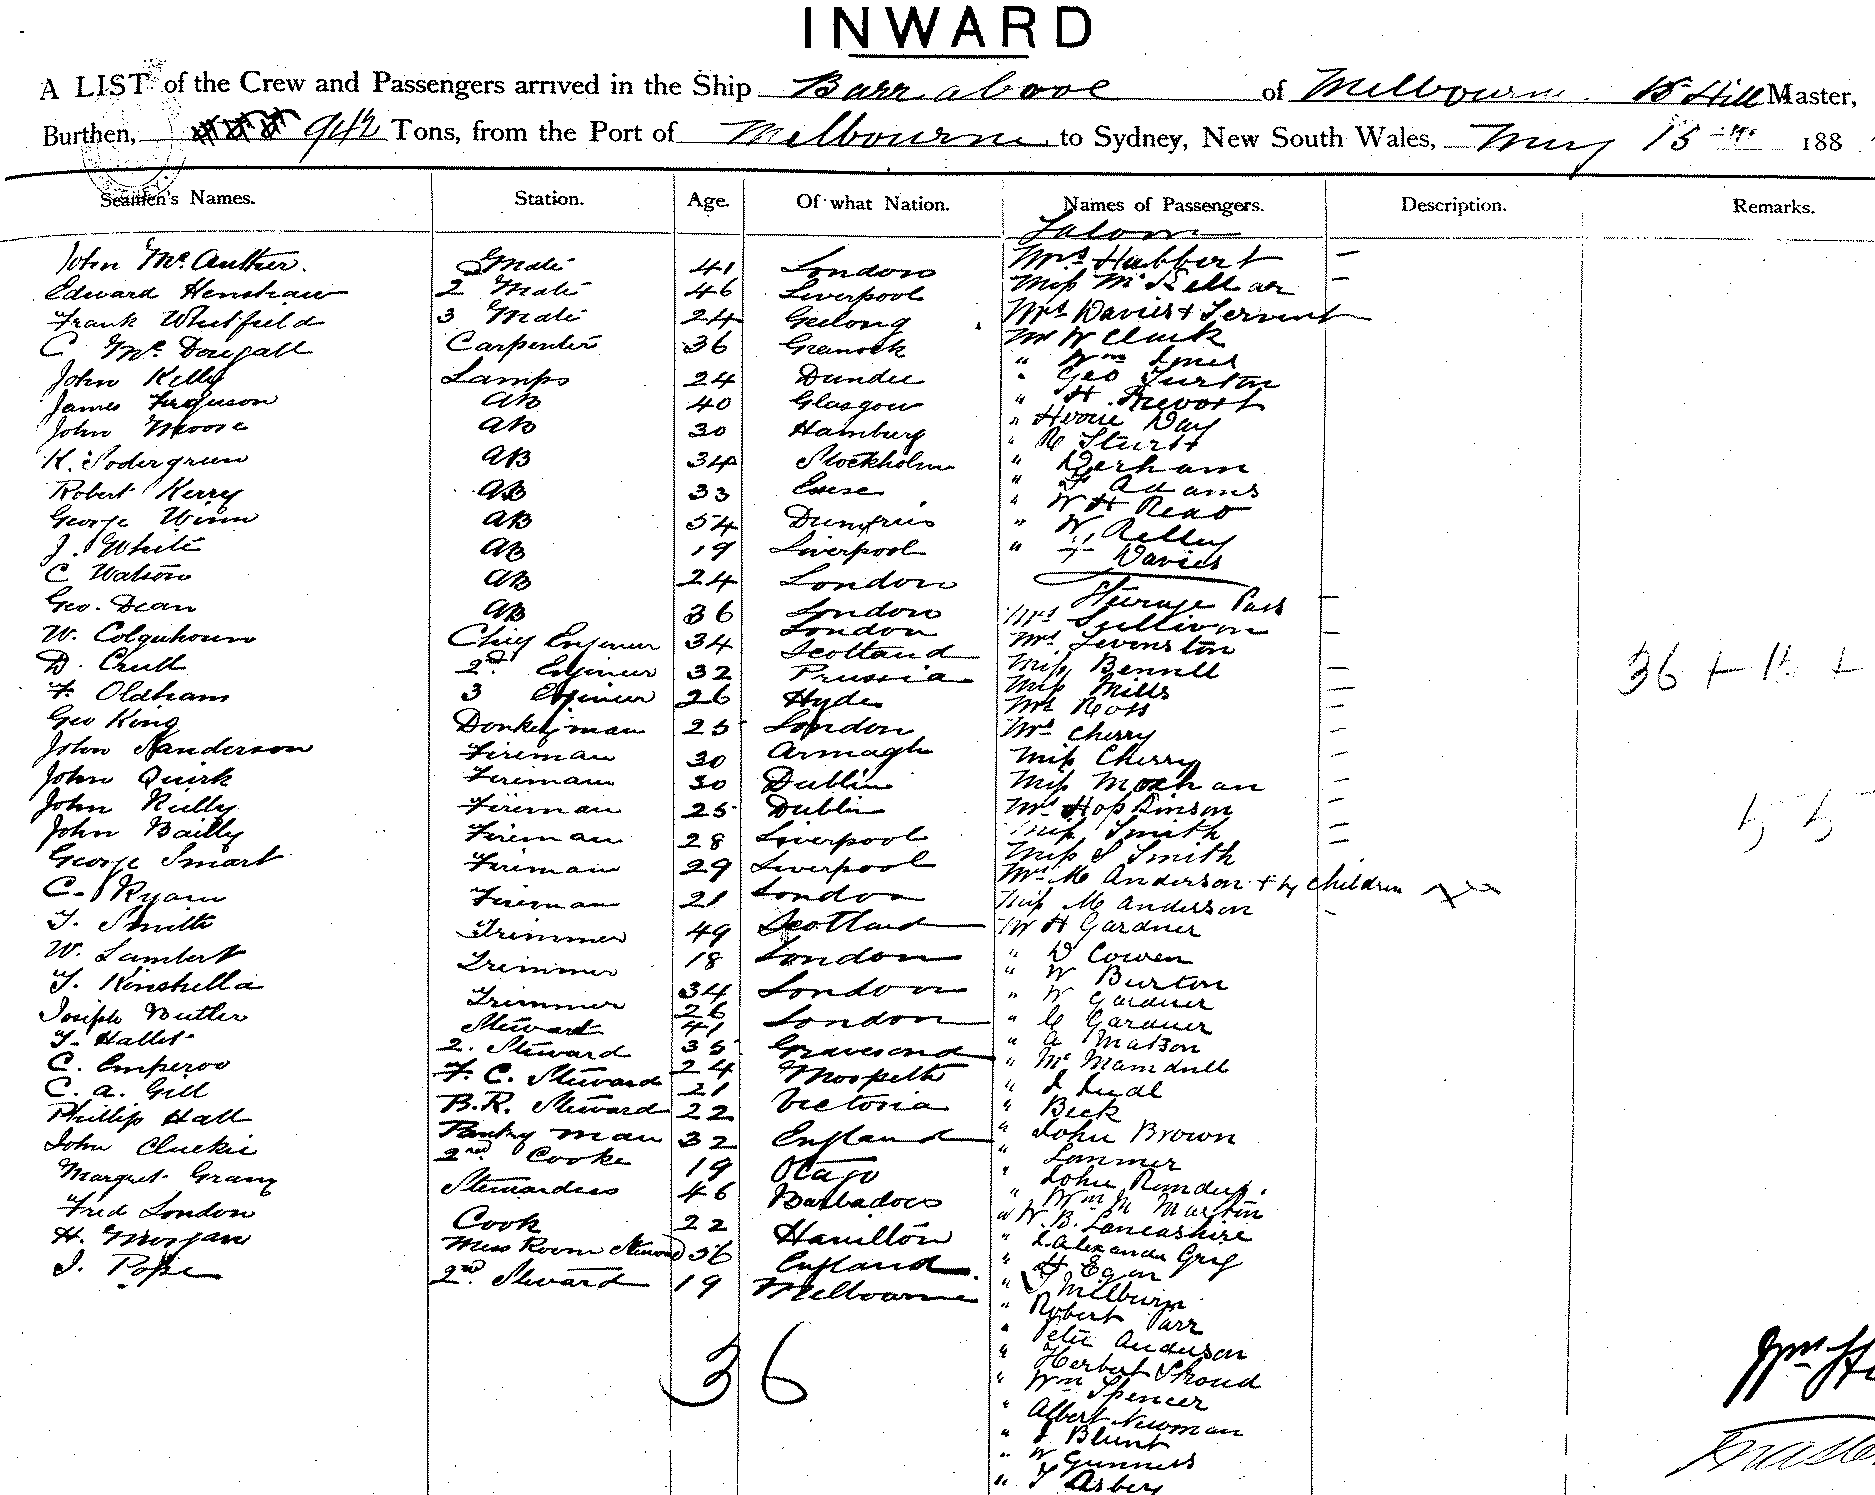 INWARD
A LIST of the Crew and Passengers arrived in the Ship Barrabool of Melbourne Hill Master,
Burthen, 942 Tons, from the Port of Melbourne to Sydney, New South Wales, May 15 188
Seamen's Names. Station. Age. Of what Nation. Names of Passengers. Description. Remarks.
Saloon
John Mc Auther. Mate 41 London Mrs Hubbert
Edward Henshaw 2 Mate 46 Liverpool Miss McKellar
Frank Whitfield 3 Mate 24 Geelong Mrs Davies + Servent
C McDougall Carpenter 36 Greenock Mr W Cluck
John Kelly Lamps 24 Dundee " Wm Jones
James Ferguson AB 40 Glasgow " Geo Turton
John Moore AB 30 Hamburg " H. Trevort
K. Sodergreen AB 34 Stockholm " Day
Robert Kerry AB 33 " R Sturtt
George Winn AB 54 Dumfries " Derham
J. White AB 19 Liverpool " F Adams
C Watson AB 24 London " W H Read
Geo. Dean AB 36 London " W. Kelley
W. Colquhoun Chief Engineer 34 London " Davies
D. Crull 2d Engineer 32 Scotland Steerage Pass
F. Oldham 3 Engineer 26 Prussia Mrs Sullivan
Geo King Donkeyman 25 Hyde Mrs Levenston
John Sanderson Fireman 30 London Miss Bennell
John Quirk Fireman 30 Armagh Miss Mills
John Reilly Fireman 25 Dublin Mrs Ross
John Bailly Fireman 28 Dublin Mrs Cherry
George Smart Fireman 29 Liverpool Miss Cherry
C. Ryan Fireman 21 Liverpool Miss Moxhan
T. Smith Trimmer 49 London Mrs Hopkinson
W. Lambert Trimmer 18 Scotland Miss Smith
T. Kinshella Trimmer 34 London Miss S Smith
Joseph Butler Steward 26 London Mrs M Anderson + 4 children
T. Hallet 2. Steward 41 London Miss M Anderson
C. Emperoo F. C. Steward 35 Gravesend Mr H Gardner
C. A. Gill B.R. Steward 24 Morpeth " D Cowen
Phillip Hall Pantry man 21 Victoria " W Burton
John Cluckie 2nd Cooke 22 England " W Gardner
Margret Grang Stewardess 32 Otago " C Gardner
Fred London Cook 19 Barbadoes " A Matson
H. Morgan Mess Room Steward 46 Hamilton " Mc Mamdull
J. Pope 2nd Steward 22 England " J
36 Melbourne " Beck
19 " John Brown
" Lammer
" John
" Wm M Marston
" W. B. Lancashire
" Alexander Grig
" H Egan
" J Milburn
" Robert Parr
" Peter Anderson
" Herbert Stroud
" Wm Spencer
" Albert Newman
" J Blunt
" W Gunness
" T Asbery
36
36 +
Wm